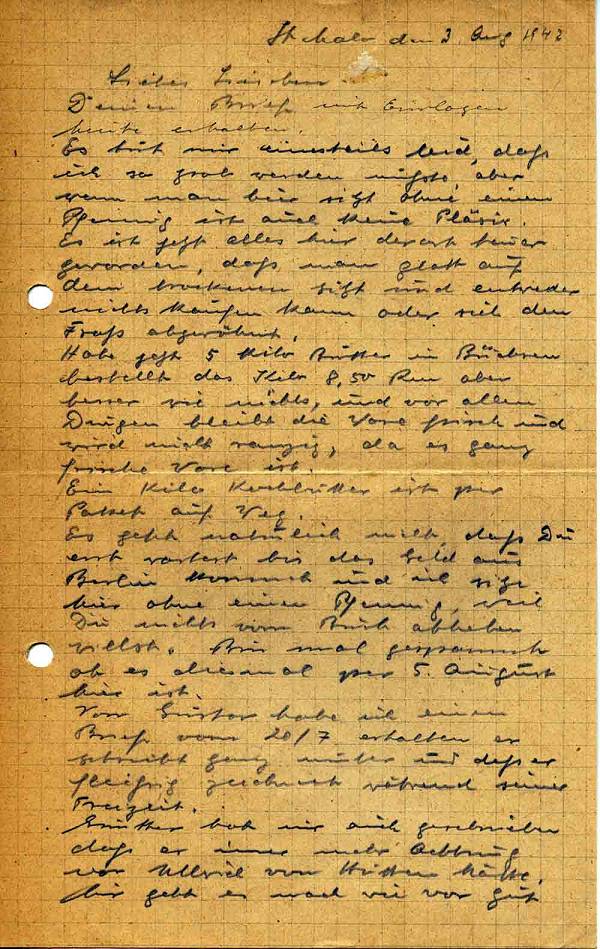 St. Malo den 3. Aug 1942
Liebes Lieschen
Deinen Brief mit Einlagen
heute erhalten.
Es tut mir einesteils leid, daß
ich so grob werden mußte, aber
wenn man hier sitzt ohne einen
Pfennig ist auch keine Pläsir.
Es ist jetzt alles hier derart teuer
geworden, daß man glatt auf
dem trockenen sitzt und entweder
nichts kaufen kann oder sich den
Fraß abgewöhnt.
Habe jetzt 5 Kilo Butter in Büchsen
bestellt das Kilo 8,50 Rm aber
besser wie nichts, und vor allen
Dingen bleibt die Ware frisch und
wird nicht ranzig, da es ganz
frische Ware ist.
Ein Kilo Kochbutter ist per
Packet auf Weg.
Es geht natürlich nicht, daß Du
erst wartest bis das Geld aus
Berlin kommt und ich sitze
hier ohne einen Pfennig, weil
Du nichts vom Buch abheben
willst. Bin mal gespannt
ob es diesmal per 5. August
hier ist.
Von Gustav habe ich einen
Brief vom 20/7 erhalten er
schreibt ganz munter und daß er
fleißig zeichnet während seiner
Freizeit.
hat mir auch geschrieben
daß er immer mehr Achtung
vor Ullrich von Hutten hätte.
Mir geht es nach wie vor gut